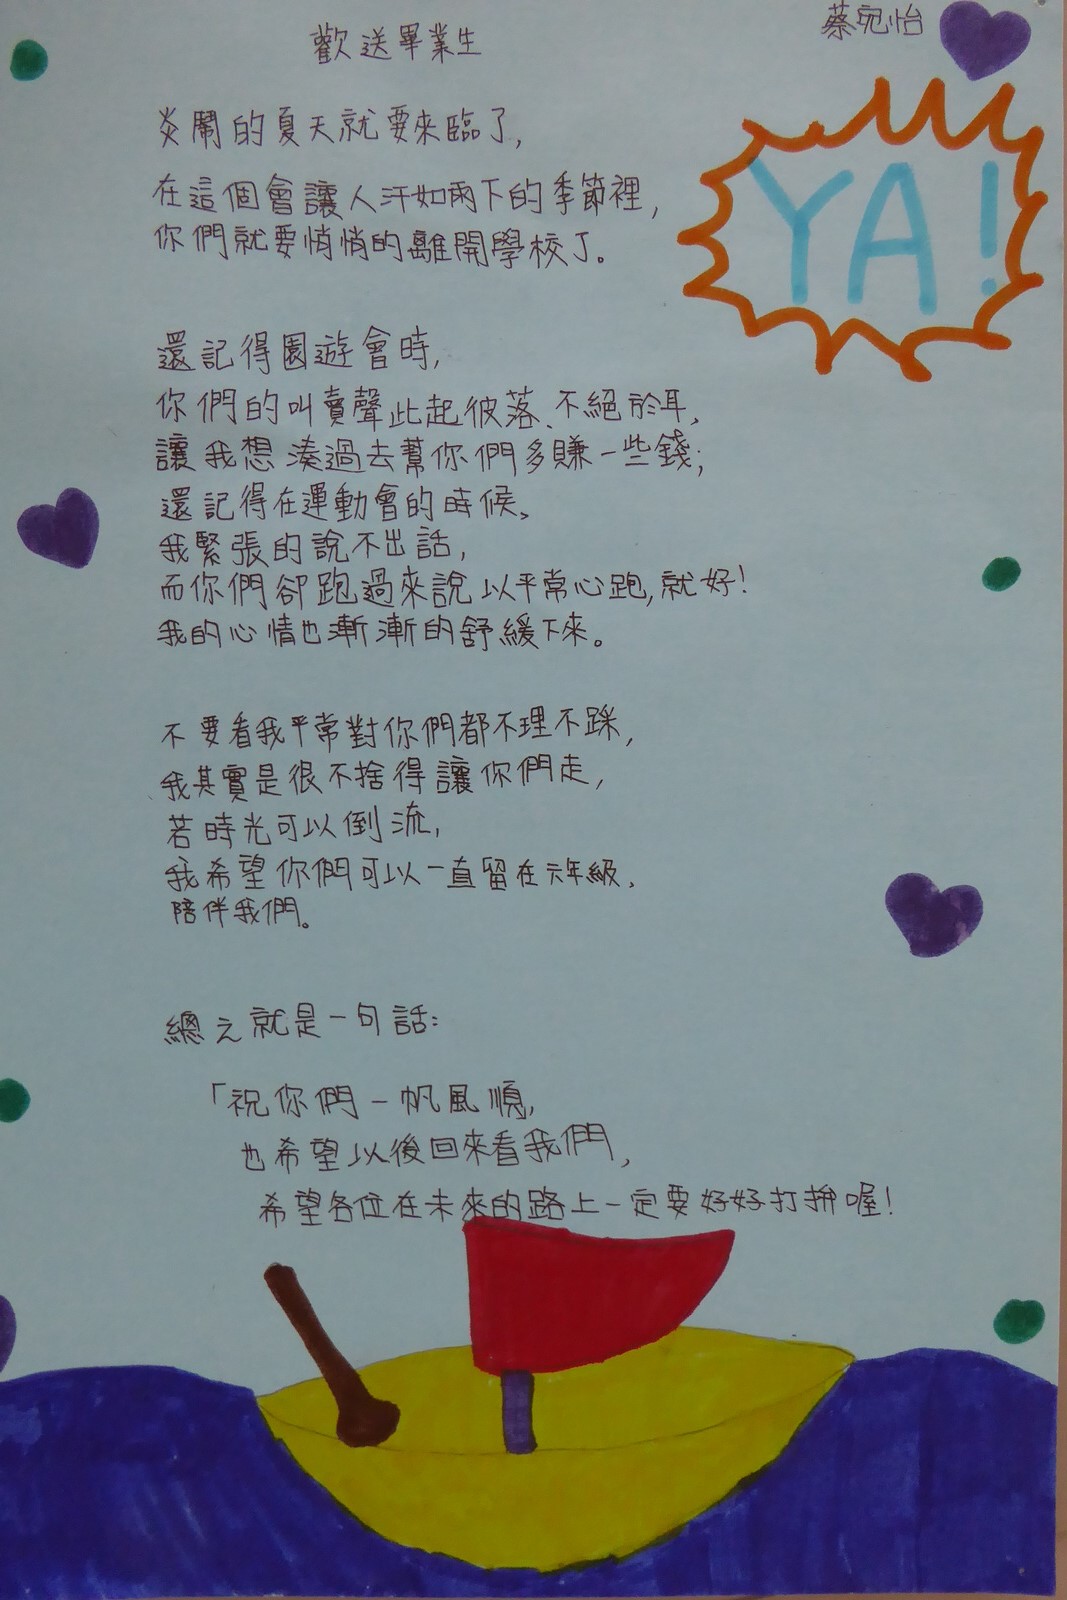 歡送畢業生
蔡宛怡
炎鬧的夏天就要來臨了,
在這個會讓人汗如雨下的季節裡,
你們就要悄悄的離開學校了。
YA!
還記得園遊會時,
你們的叫賣聲此起彼落、不絕於耳,
讓我想湊過去幫你們多賺一些錢;
還記得在運動會的時候、
我緊張的說不出話,
而你們卻跑過來說以平常心跑,就好!
我的心情也漸漸的舒緩下來。
不要看我平常對你們都不理不踩,
我其實是很不捨得讓你們走,
若時光可以倒流,
我希望你們可以一直留在六年級、
陪伴我們。
總之就是一句話:
「祝你們一帆風順,
也希望以後回來看我們,
希望各位在未來的路上一定要好好打拚喔!